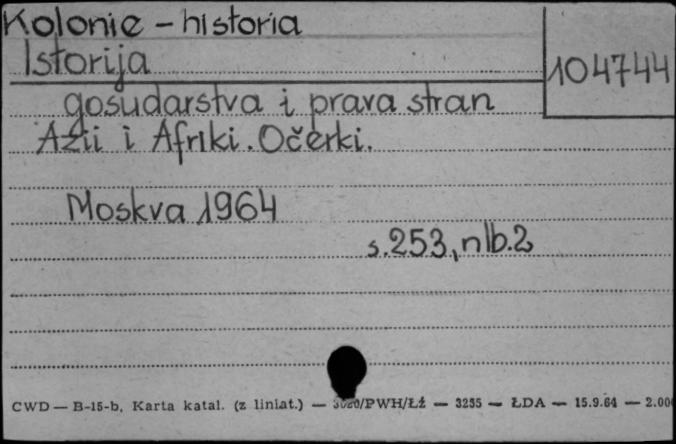 Kolonie - historia
Istorija
104744
gosudarstva i prava stran
Azii i Afriki. Očerki.
Moskva 1964
s. 253, nlb. 2
CWD — B-15-b, Karta katal. (z liniat.) — /PWH/Łż — 3255 — ŁDA — 15.9.64 — 2.00